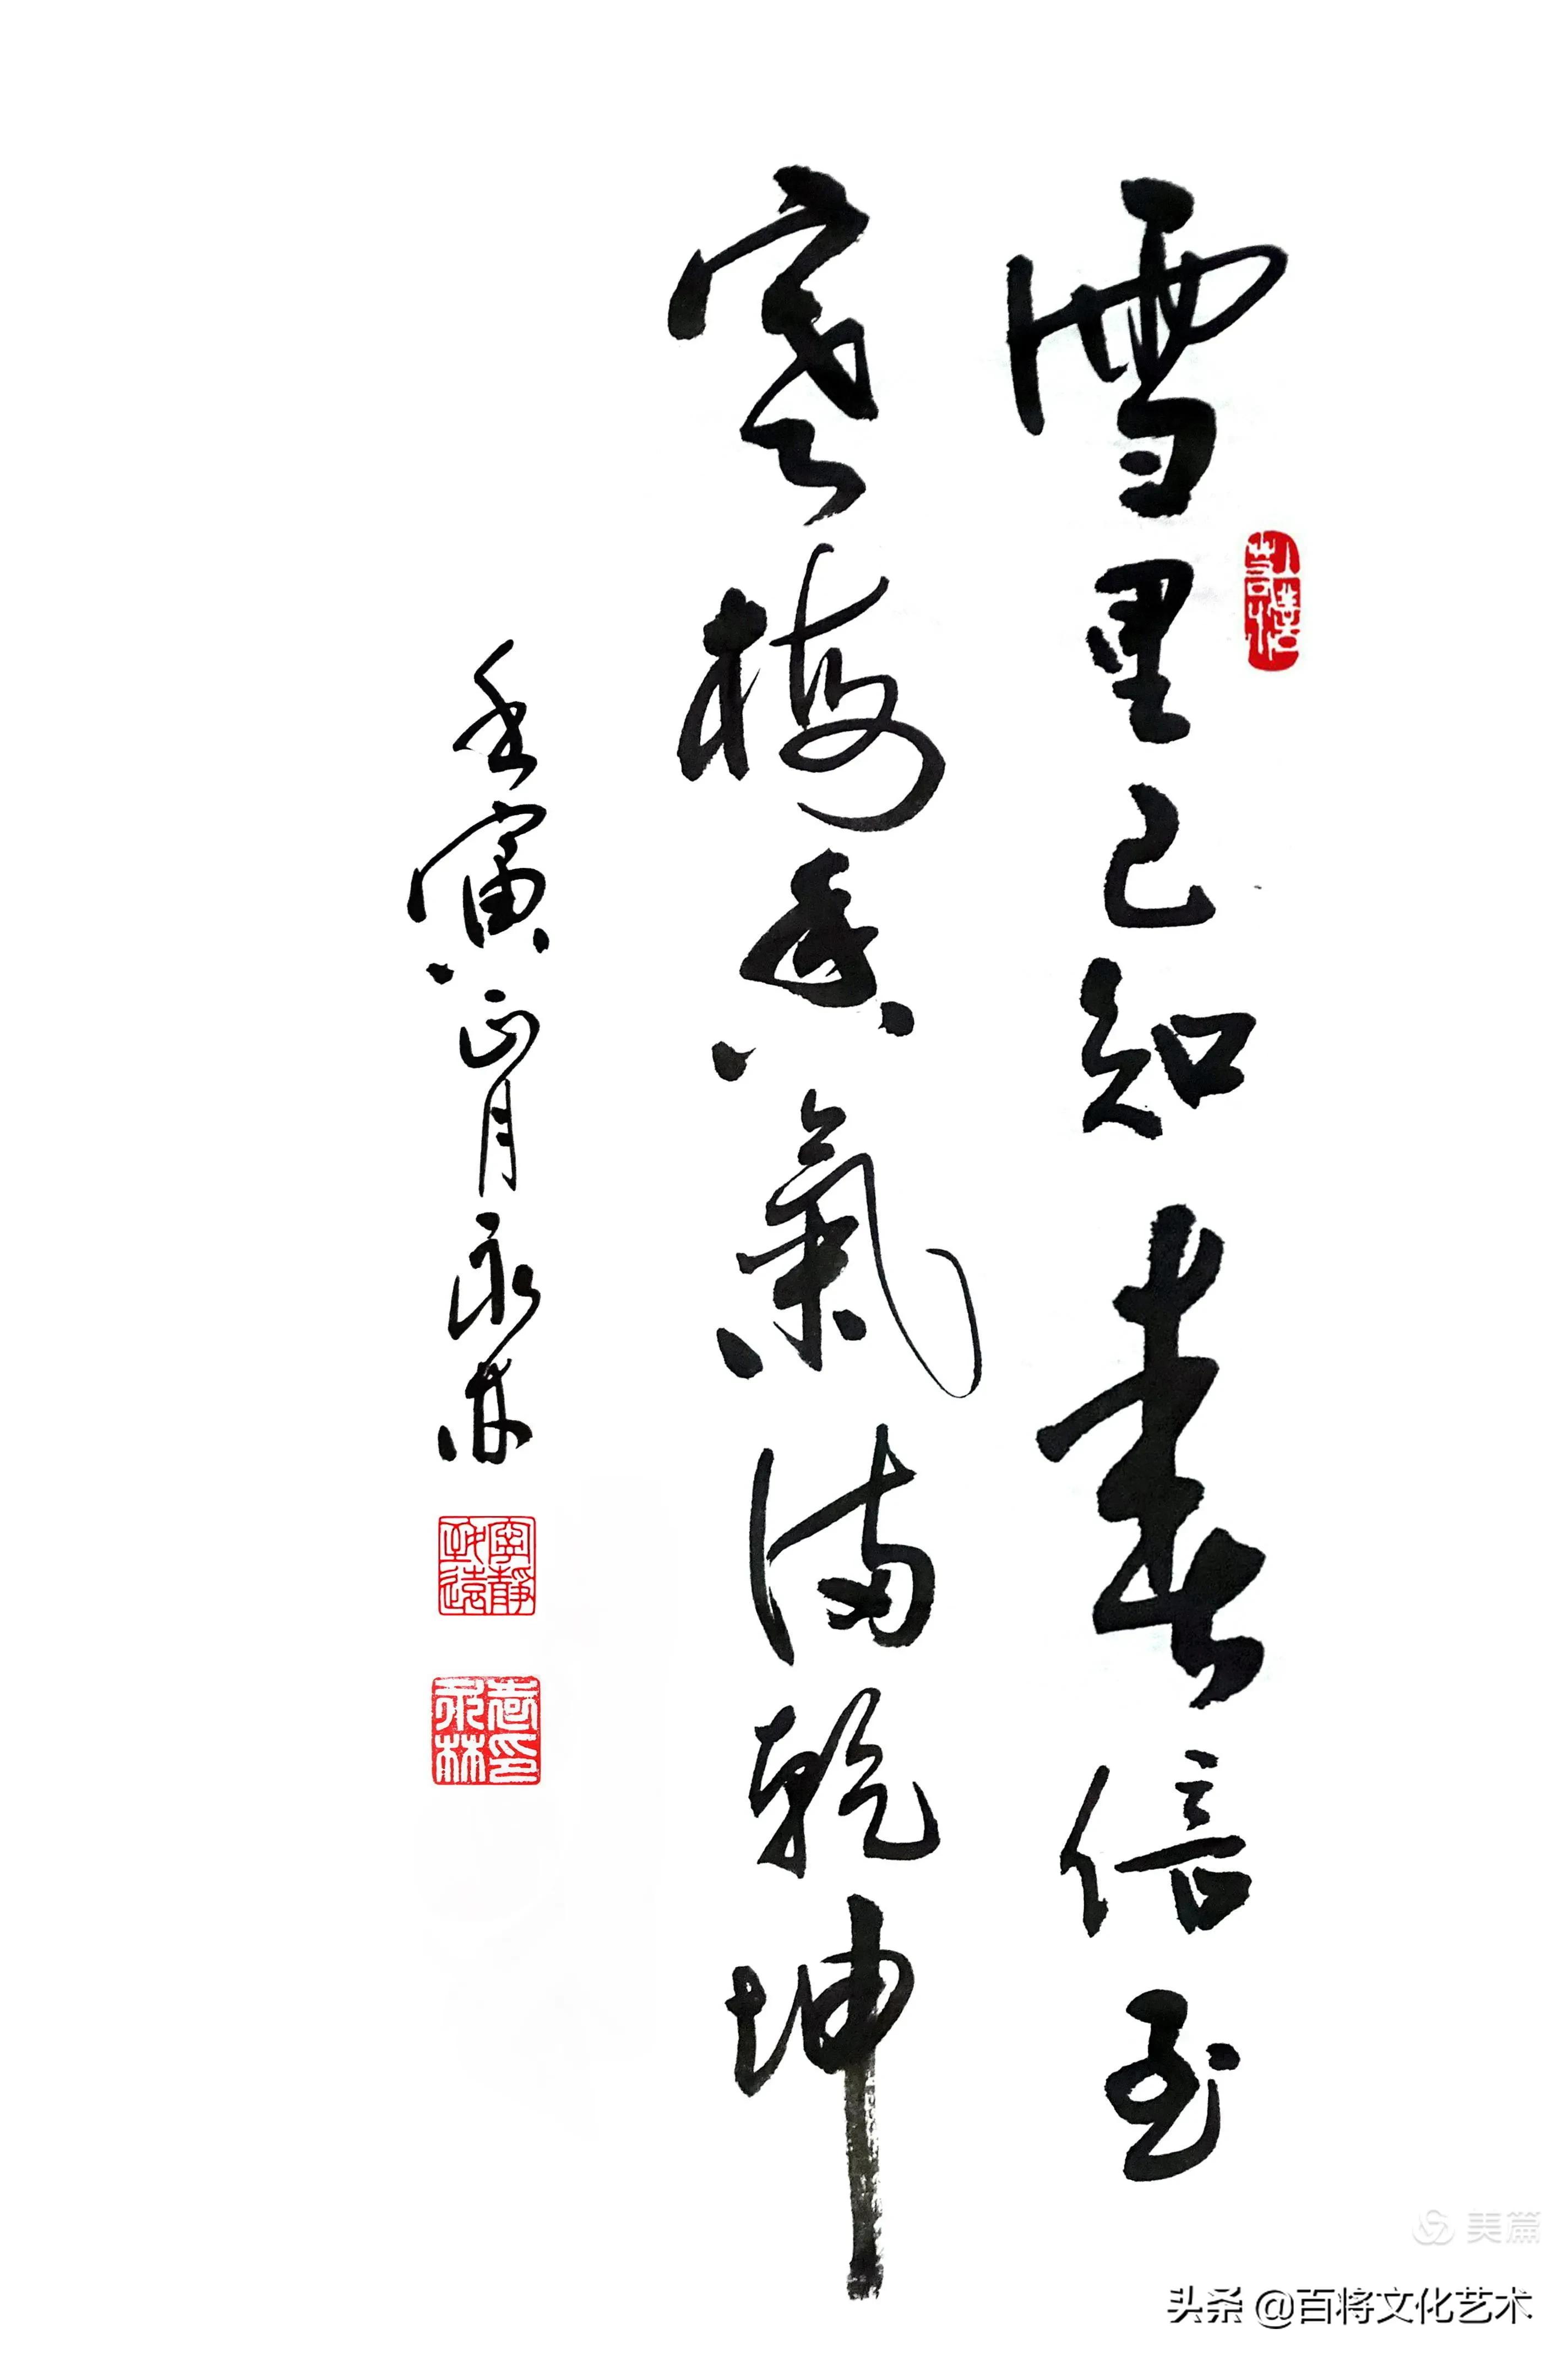 雪里已知春信至
寒梅香氣滿乾坤
壬寅正月永林
寧靜致遠
袁印永林
美篇
头条 @百将文化艺术